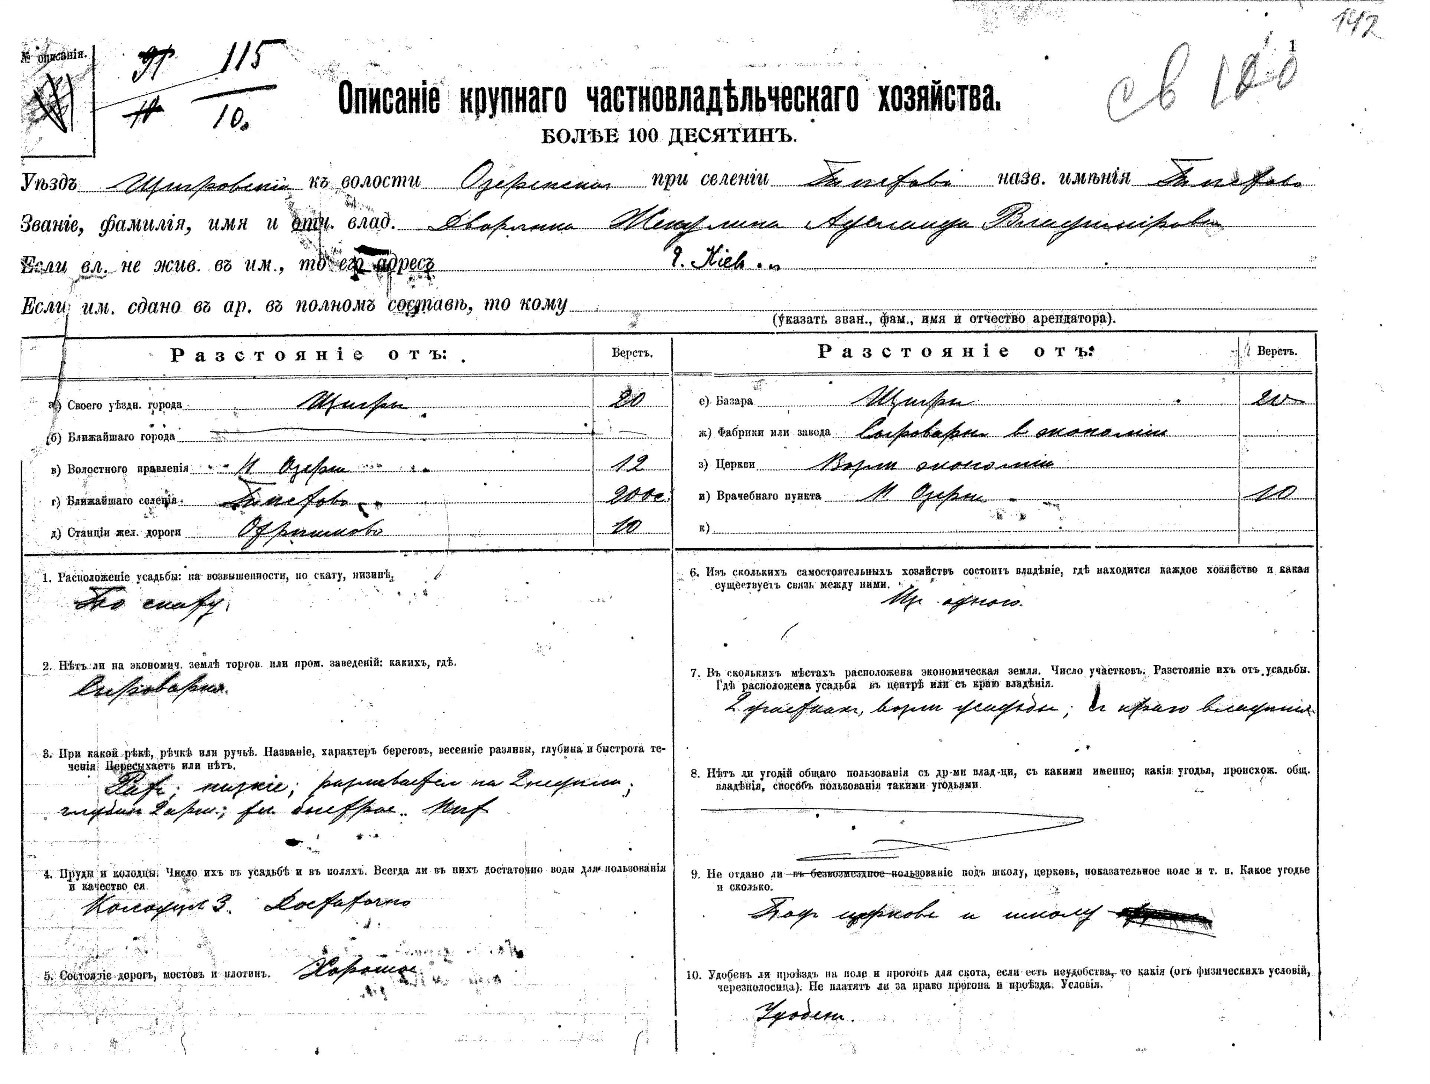 142
№ описанія.
115
10.
св 100
1
Описаніе крупнаго частновладѣльческаго хозяйства.
БОЛѢЕ 100 ДЕСЯТИНЪ.
Уѣздъ Щигровскій къ волости Озеренская при селеніи назв. имѣнія
Званіе, фамилія, имя и отч. влад. Дворянка Жекулина Аделаида Владиміровна
Если вл. не жив. въ им., то его адресъ г. Кіевъ
Если им. сдано въ ар. въ полномъ составѣ, то кому
(указать зван., фам., имя и отчество арендатора).
Разстояніе отъ: Верстъ.
а) Своего уѣздн. города Щигры 20
б) Ближайшаго города
в) Волостного правленія Озерки 12
г) Ближайшаго селенія
д) Станціи жел. дороги Охочевка 10
Разстояніе отъ: Верстъ.
е) Базара Щигры 20
ж) Фабрики или завода Сыроварня в экономіи
з) Церкви Возли экономіи
и) Врачебнаго пункта Озерки 10
к)
1. Расположеніе усадьбы: на возвышенности, по скату, низинѣ.
По скату.
2. Нѣтъ ли на экономич. землѣ торгов. или пром. заведеній: какихъ, гдѣ.
Сыроварня.
3. При какой рѣкѣ, рѣчкѣ или ручьѣ. Названіе, характеръ береговъ, весенніе разливы, глубина и быстрота те-
ченія. Пересыхаетъ или нѣтъ.
низкіе; разливается на 2 недели;
глубина 2 арш.;
4. Пруды и колодцы. Число ихъ въ усадьбѣ и въ поляхъ. Всегда ли въ нихъ достаточно воды для пользованія
и качество ея
Колодца 3. Достаточно
5. Состояніе дорогъ, мостовъ и плотинъ. Хорошое
6. Изъ сколькихъ самостоятельныхъ хозяйствъ состоитъ владѣніе, гдѣ находится каждое хозяйство и какая
существуетъ связь между ними.
Из одного.
7. Въ сколькихъ мѣстахъ расположена экономическая земля. Число участковъ. Разстояніе ихъ отъ усадьбы.
Гдѣ расположена усадьба въ центрѣ или съ краю владѣнія.
2 участках, возли усадьбы; с краю владения
8. Нѣтъ ли угодій общаго пользованія съ др-ми влад-ци, съ какими именно; какія угодья, происхож. общ.
владѣнія, способъ пользованія такими угодьями.
9. Не отдано ли въ безвозмездное пользованіе подъ школу, церковь, показательное поле и т. п. Какое угодье
и сколько.
Под церковь и школу
10. Удобенъ ли проѣздъ на поле и прогонъ для скота, если есть неудобства, то какія (отъ физическихъ условій,
черезполосица). Не платятъ ли за право прогона и проѣзда. Условія.
Удобен.